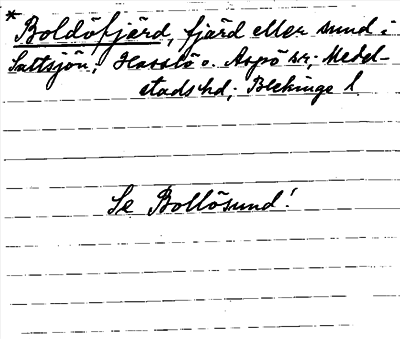 * Boldöfjärd, fjärd eller sund i
Saltsjön, Hasslö o. Aspö sr; Medel-
stads hd; Blekinge l.
Se Bollösund!